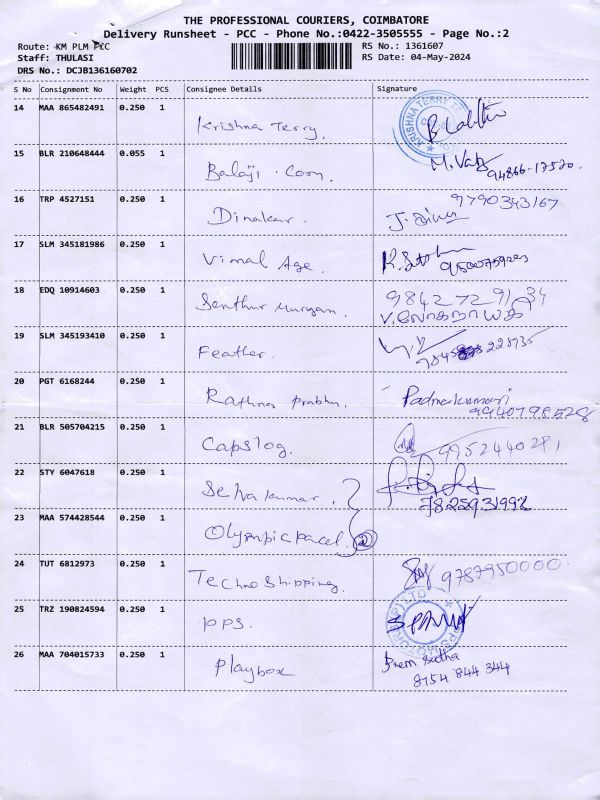 THE PROFESSIONAL COURIERS, COIMBATORE
Delivery Runsheet - PCC - Phone No.:0422-3505555 - Page No.:2
Route: KM PLM PCC
Staff: THULASI
DRS No.: DCJB136160702
RS No.: 1361607
RS Date: 04-May-2024
S No Consignment No Weight PCS Consignee Details Signature
14 MAA 865482491 0.250 1 Krishna Terry.
KRISHNA TERRY
15 BLR 210648444 0.055 1 Balaji . Coon
94866-17520.
16 TRP 4527151 0.250 1 Dinakar. 9790343167
17 SLM 345181986 0.250 1 Vimal Age.
9500759203
18 EDQ 10914603 0.250 1 Senthur Murugan. 9842729134
V.லோகநாயகி
19 SLM 345193410 0.250 1 Feather.
20 PGT 6168244 0.250 1 Rathna Prabhu. Padmakumari
9940798528
21 BLR 505704215 0.250 1 Capslog. 9952440281
22 STY 6047618 0.250 1 Selvakumar.
7825931992
23 MAA 574428544 0.250 1 Olympic pacel. 2
24 TUT 6812973 0.250 1 Techno Shipping. 9787950000
25 TRZ 190824594 0.250 1 PPS.
26 MAA 704015733 0.250 1 Playbox Prem Sudha
8754 844 344